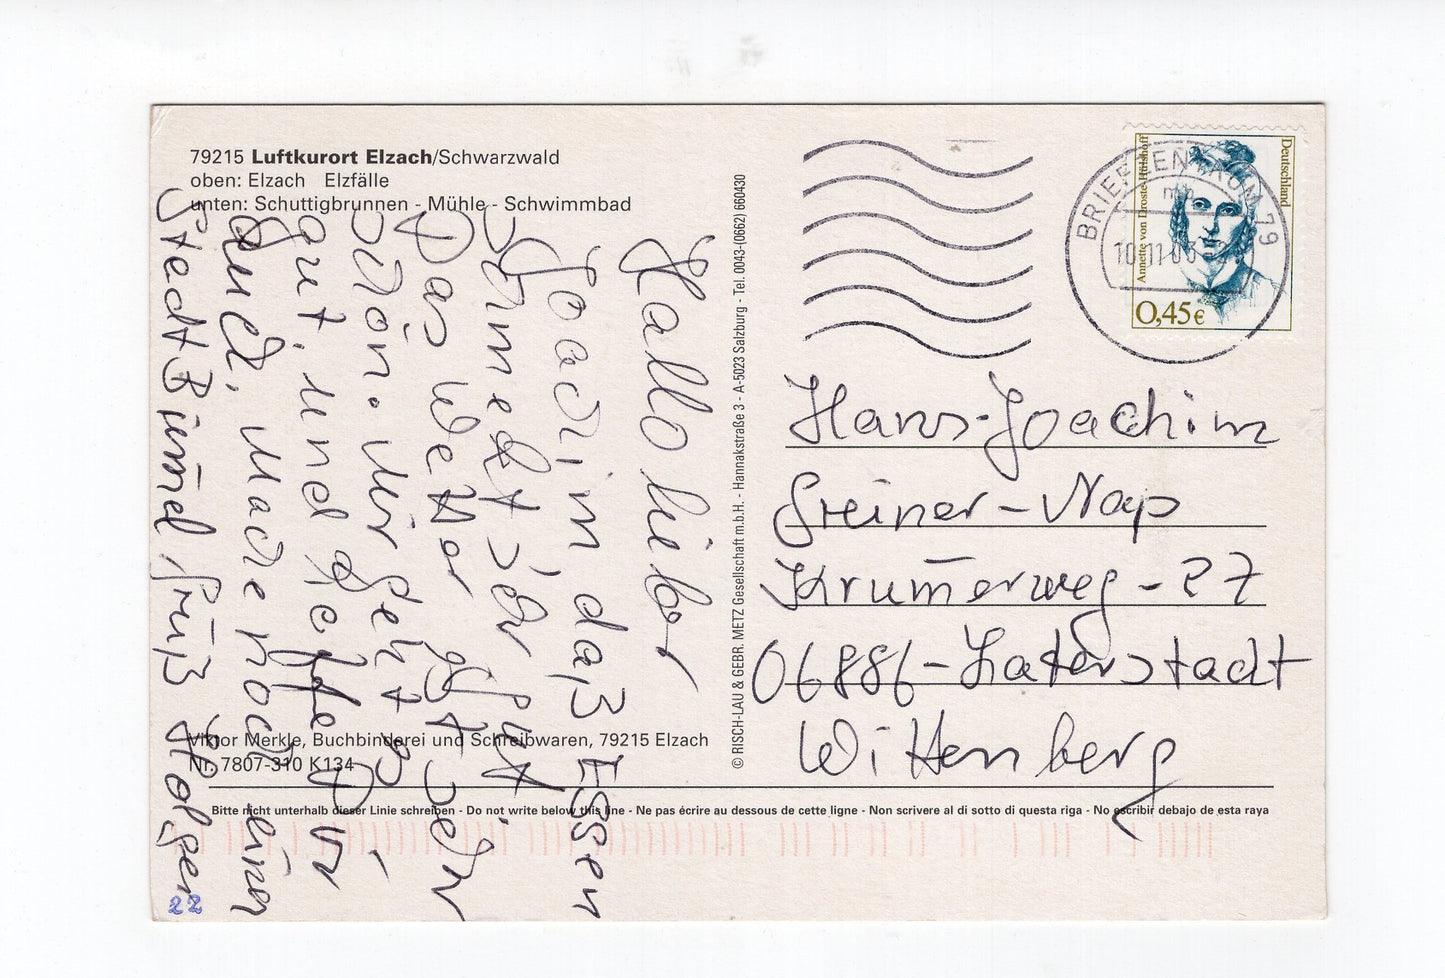 79215 Luftkurort Elzach/Schwarzwald
oben: Elzach Elzfälle
unten: Schuttigbrunnen - Mühle - Schwimmbad
Hallo lieber
Joachim daß Essen
Schmekt sehr gut
Das Wetter ist sehr
schön. Mir geht es
gut, und
auch, mache noch einen
Stedt Bümel, Grüß Holger
Viktor Merkle, Buchbinderei und Schreibwaren, 79215 Elzach
Nr. 7807-310 K134
22
© RISCH-LAU & GEBR. METZ Gesellschaft m.b.H. - Hannakstraße 3 - A-5023 Salzburg - Tel. 0043-(0662) 660430
BRIEFZENTRUM 79
mb
10.11.03
Deutschland
Annette von Droste-Hülshoff
0,45€
Hans-Joachim
Greiner-Nap
Krumerweg-27
06886-Luterstadt
Wittenberg
Bitte nicht unterhalb dieser Linie schreiben - Do not write below this line - Ne pas écrire au dessous de cette ligne - Non scrivere al di sotto di questa riga - No escribir debajo de esta raya